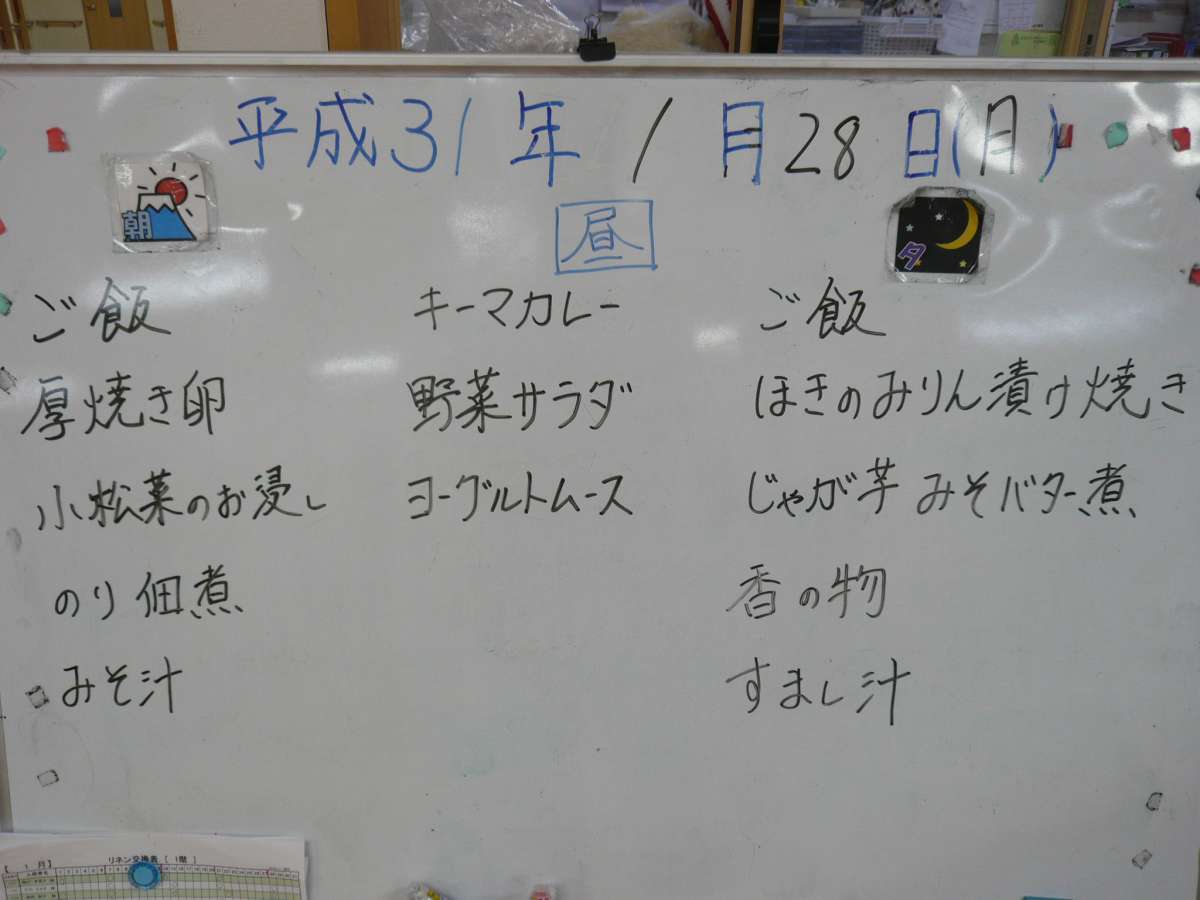 平成31年1月28日(月)
朝
昼
夕
ご飯
厚焼き卵
小松菜のお浸し
のり佃煮
みそ汁
キーマカレー
野菜サラダ
ヨーグルトムース
ご飯
ほきのみりん漬け焼き
じゃが芋みそバター煮
香の物
すまし汁
【 1 月】 リネン交換表 [ 1階 ]